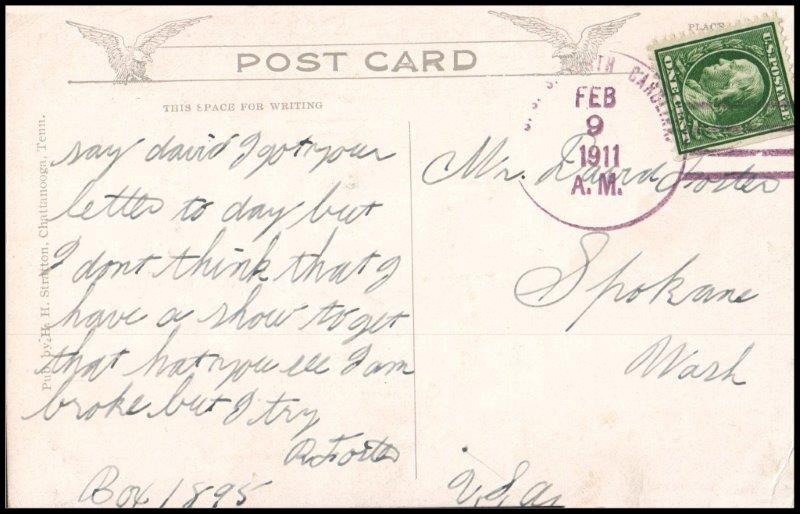 POST CARD
PLACE
THIS SPACE FOR WRITING
U.S. POSTAGE
ONE CENT
CAROLINA
FEB
9
1911
A.M.
Pub. by H. H. Stratton, Chattanooga, Tenn.
say david I got your
letter to day but
I dont think that I
have a show to get
that hat you see I am
broke but I try
R Foster
Box 1895
Mr. David Foster
Spokane
Wash
U.S.A